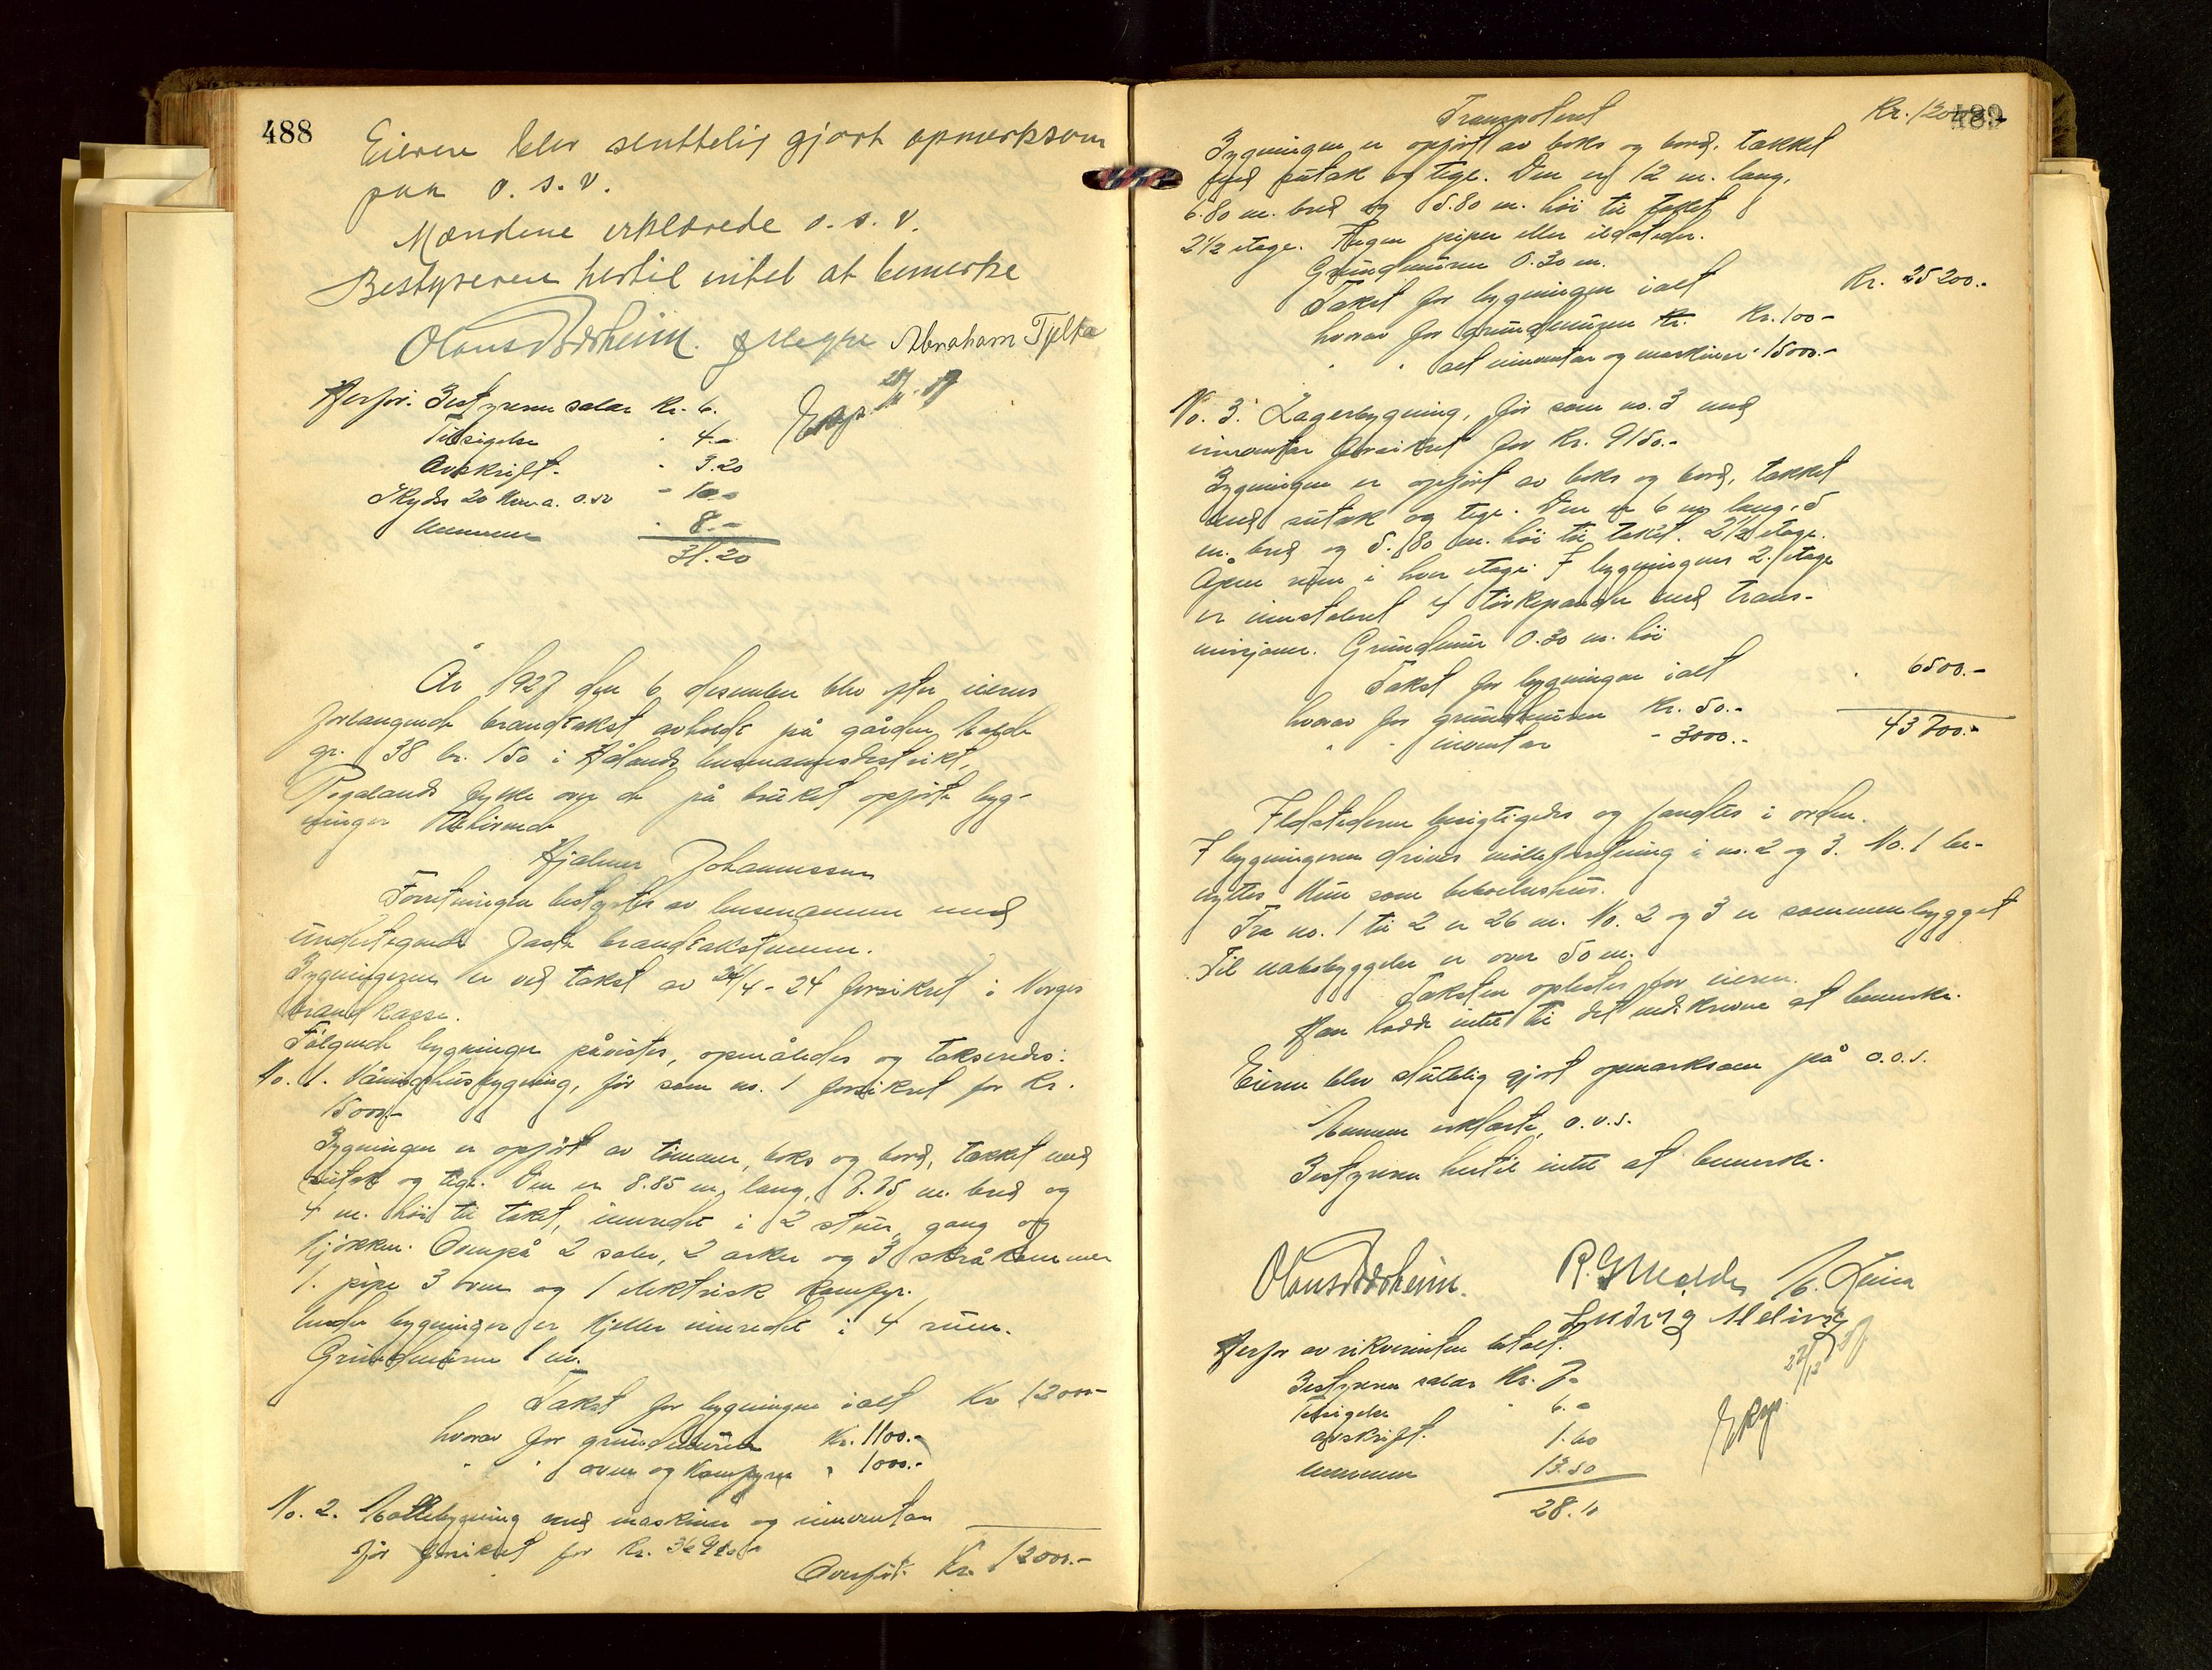 488
Eieren blev sluttelig gjort opmerksom
paa o. s. v.
Mændene erklærede o. s. v.
Bestyreren hertil intet at bemerke
Abraham Tjelta
Herfor: Bestyreren salær Kr. 6.
Tilsigelse " 4.-
Avskrift. " 3.20
Skyds 20 km a. 0.50 - 10.-
Mennene " 8.-
31.20
År 1927 den 6 desember blev efter eierens
forlangende brandtakst avholdt på gården Molde
gr. 38 br. 150 i Hålands lensmannsdistrikt,
Rogalands fylke over de på bruket opførte byg-
ninger tilhørende
Hjalmer Johannessen
Forretningen bestyrtes av lensmannen med
undertegnede faste brandtakstmenn.
Bygningerne er ved takst av 24/4-24 forsikret i Norges
brandkasse.
Følgende bygninger påvistes, opmåledes og taksertes:
No. 1. Våningshusbygning, før som no. 1 forsikret for kr.
15000.-
Bygningen er opført av tømmer, boks og bord, tækket med
sutak og tegl. Den er 8.85 m. lang, 7.75 m. bred og
4 m. høi til taket, innredet i 2 stuer, gang og
kjøkken. Ovenpå 2 saler, 2 arker og 3 skråkammer
1. pipe 3 ovner og 1 elektrisk komfyr.
Under bygningen er kjeller innredet i 4 rum.
Grundmuren 1 m.
Takst for bygningen ialt Kr 12000-
hvorav for grundmuren Kr. 1100.-
" " ovner og komfyren " 1000.-
No. 2. Møllebygning med maskiner og inventar
før forsikret for kr.
Overført Kr. 12000.-
489
Transportert Kr. 12000.-
Bygningen er opført av boks og bord, tækket
med sutak og tegl. Den er 12 m. lang,
6.80 m. bred og 5.80 m. høi til taket
2½ etage. Ingen piper eller ildsteder.
Grundmuren 0.30 m.
Takst for bygningen ialt Kr. 25200.-
hvorav for grundmuren Kr. 100-
" " det inventar og maskiner " 15000.-
No. 3. Lagerbygning, før som no. 3 med
inventar forsikret for kr. 9150.-
Bygningen er opført av boks og bord, tækket
med sutak og tegl. Den er 6 m lang, 5
m. bred og 5.80 m. høi til taket. 2½ etage.
Åpne rum i hver etage. I bygningens 2. etage
er innstaleret 4 tørkepander med trans-
misjoner. Grundmur 0.30 m. høi
Takst for bygningen ialt " 6500.-
hvorav for grundmuren Kr. 50.-
" " inventar - 3000.- 43700.-
Ildstederne besigtigedes og fandtes i orden.
I bygningerne drives mølleforretning i no. 2 og 3. No. 1 be-
nyttes kun som beboelseshus.
Fra no. 1 til 2 er 26 m. No. 2 og 3 er sammenbygget
Til nabobyggelse er over 50 m.
Taksten oplestes for eieren.
Han hadde intet til det nedskrevne at bemerke.
Eieren blev sluttelig gjort opmerksom på o.s.v.
Mennene erklærte, o.v.s.
Bestyreren hertil intet at bemerke.
Ludvig Meling
Herfor av rekvirenten betalt.
Bestyreren salær Kr. 7-
Tilsigelse " 6.-
avskrift. 1.60
Mennene 13.50
28.10